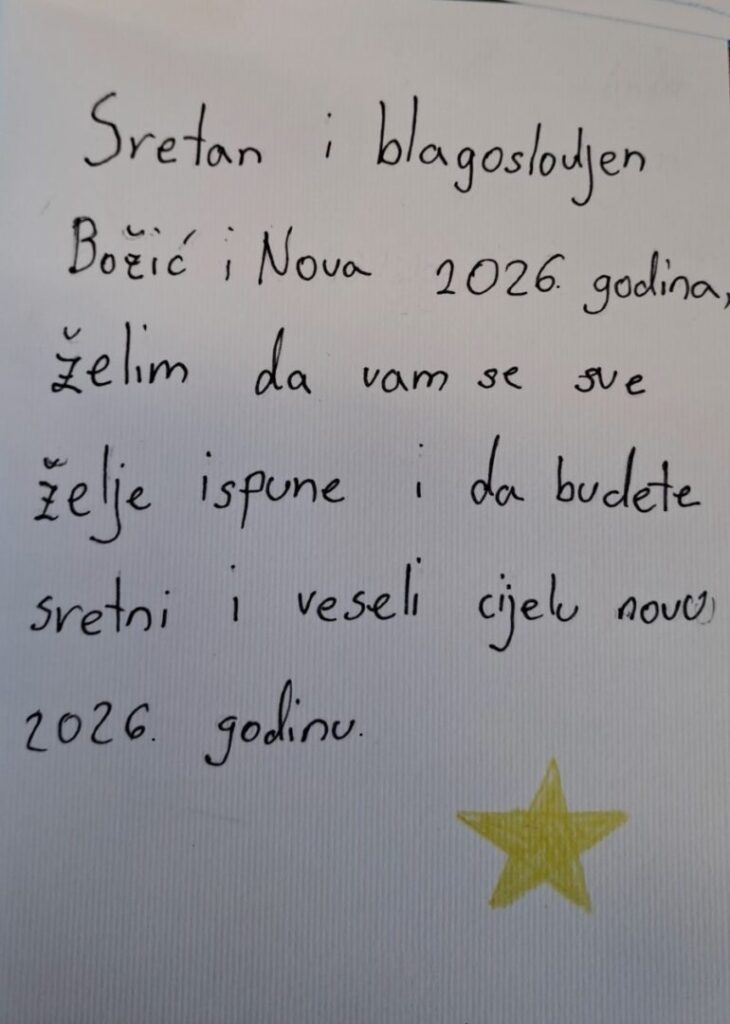 Sretan i blagoslovljen
Božić i Nova 2026. godina,
želim da vam se sve
želje ispune i da budete
sretni i veseli cijelu novu
2026. godinu.